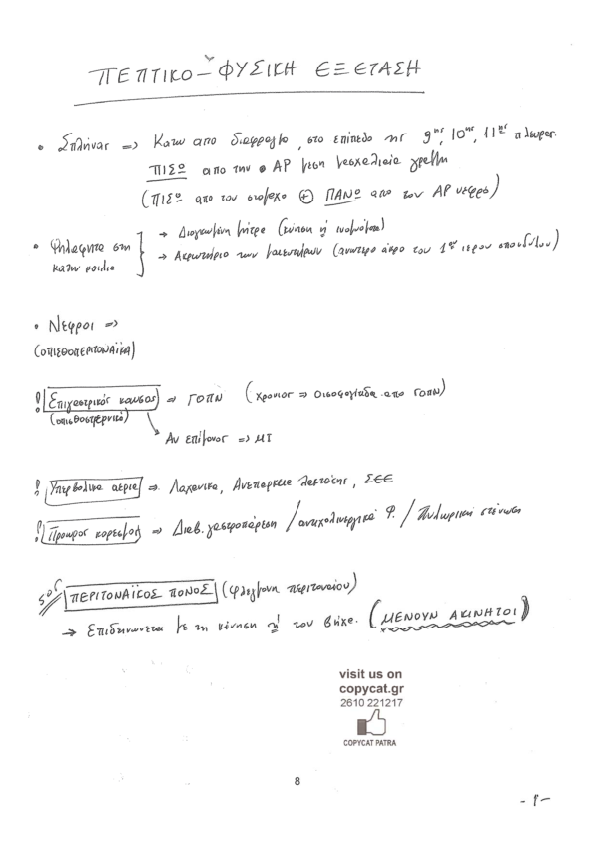 ΠΕΠΤΙΚΟ – ΦΥΣΙΚΗ ΕΞΕΤΑΣΗ
• Σπλήνας => Κατω απο διαφραγμα, στο επίπεδο της 9ης, 10ης, 11ης πλευρας.
ΠΙΣΩ απο την ΑΡ μεση μασχαλιαία γραμμη
(ΠΙΣΩ απο τον στομαχο ⊕ ΠΑΝΩ απο τον ΑΡ νεφρό)
• Ψηλαφητα στη κατω κοιλια
→ Διογκωμένη μήτρα (κύηση ή ινομυώματα)
→ Ακρωτήριο των μαιευτήρων (ανωτερο άκρο του 1ου ιερου σπονδύλου)
• Νεφροι =>
(οπισθοπεριτοναϊκα)
! Επιγαστρικός καυσος => ΓΟΠΝ (χρονιος => Οισοφαγιτιδα απο ΓΟΠΝ)
(οπισθοστερνικό)
Αν επίμονος => ΜΙ
! Υπερβολικα αερια => Λαχανικα, Ανεπαρκεια λακτάσης, ΣΕΕ
! Πρόωρος κορεσμός => Διαβ. γαστροπάρεση / αντιχολινεργικά Φ. / Πυλωρική στένωση
SOS ΠΕΡΙΤΟΝΑΪΚΟΣ ΠΟΝΟΣ (φλεγμονη περιτοναίου)
→ Επιδεινωνεται με τη κίνηση ή τον βηχα. (ΜΕΝΟΥΝ ΑΚΙΝΗΤΟΙ)
visit us on
copycat.gr
2610 221217
COPYCAT PATRA
8